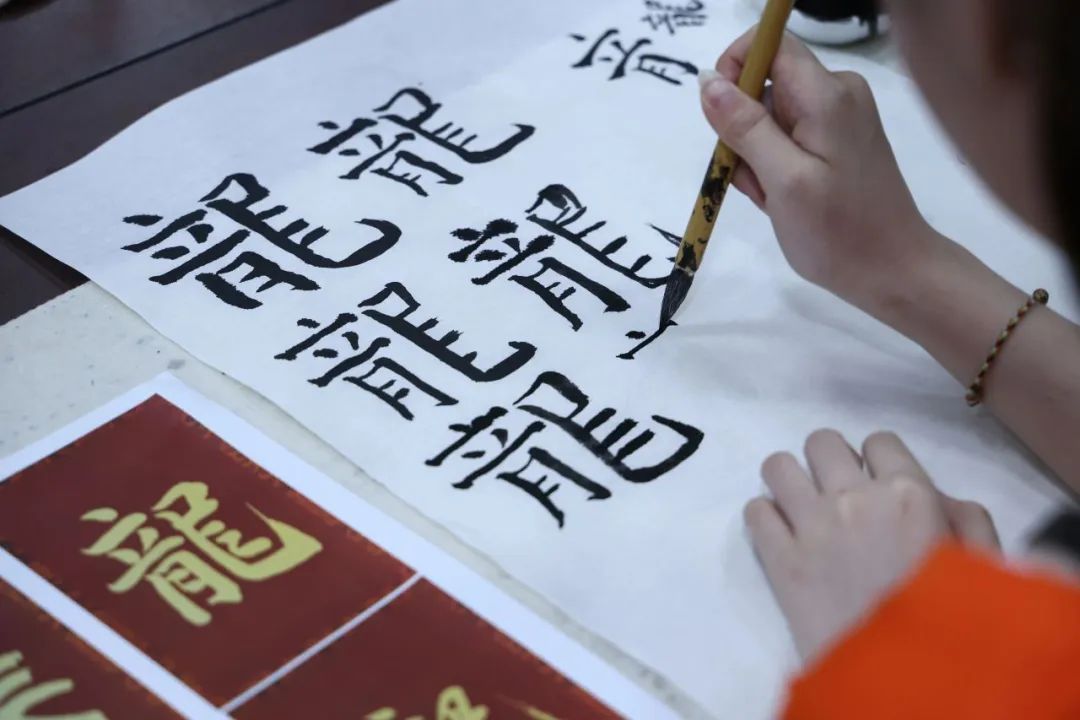 龍
龍龍
龍龍龍
龍